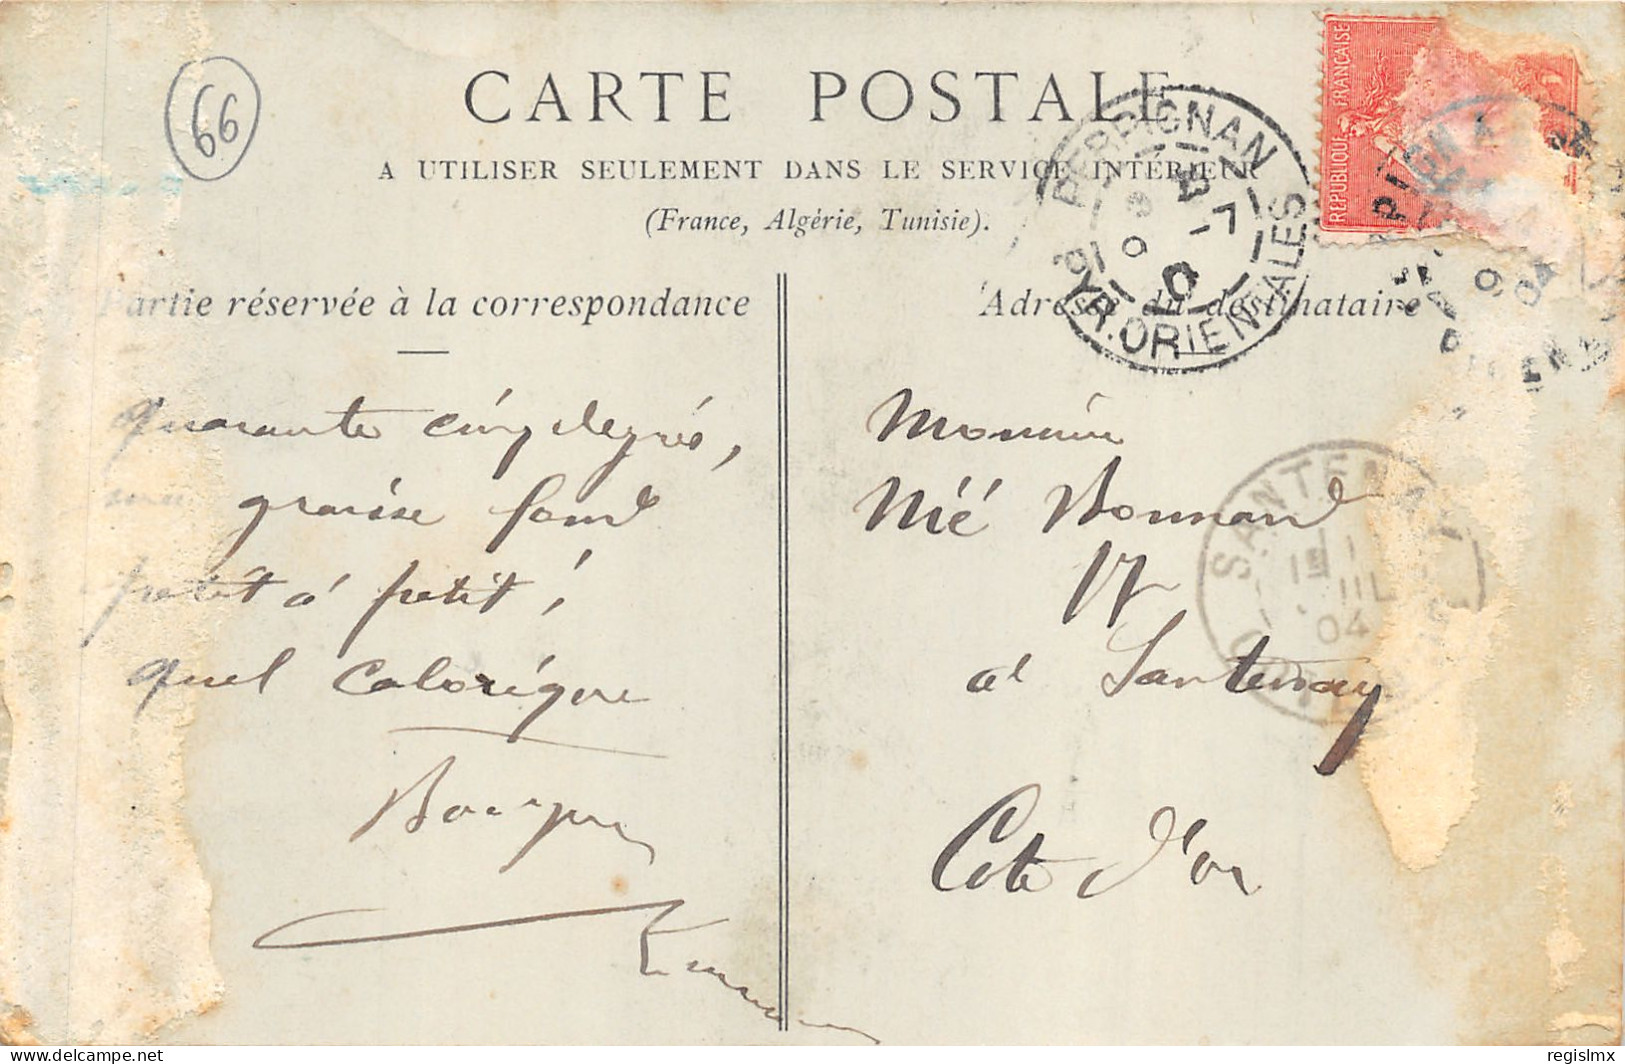 66
CARTE POSTALE
A UTILISER SEULEMENT DANS LE SERVICE INTÉRIEUR
(France, Algérie, Tunisie).
RÉPUBLIQUE FRANÇAISE
PERPIGNAN
PYR. ORIENTALES
Partie réservée à la correspondance
Adresse du destinataire
quarante cinq degrés,
graisse fond
petit à petit !
quel calorique
Monsieur
Nié Bonnard
à Santenay
Côte d'or
SANTENAY
04
regislmx
delcampe.net